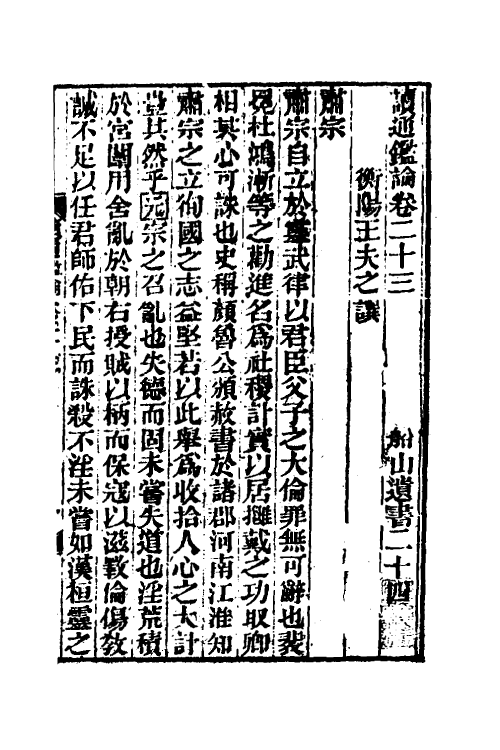 讀通鑑論卷二十三 船山遺書二十四
衡陽王夫之譔
肅宗
肅宗自立於靈武律以君臣父子之大倫罪無可辭也裴
冕杜鴻漸等之勸進名爲社稷計實以居擁戴之功取卿
相其心可誅也史稱顏魯公頒赦書於諸郡河南江淮知
肅宗之立徇國之志益堅若以此舉爲收拾人心之大計
豈其然乎元宗之召亂也失德而固未嘗失道也淫荒積
於宮闈用舍亂於朝右授賊以柄而保寇以滋致倫傷敎
誠不足以任君師佑下民而誅殺不淫未嘗如漢桓靈之